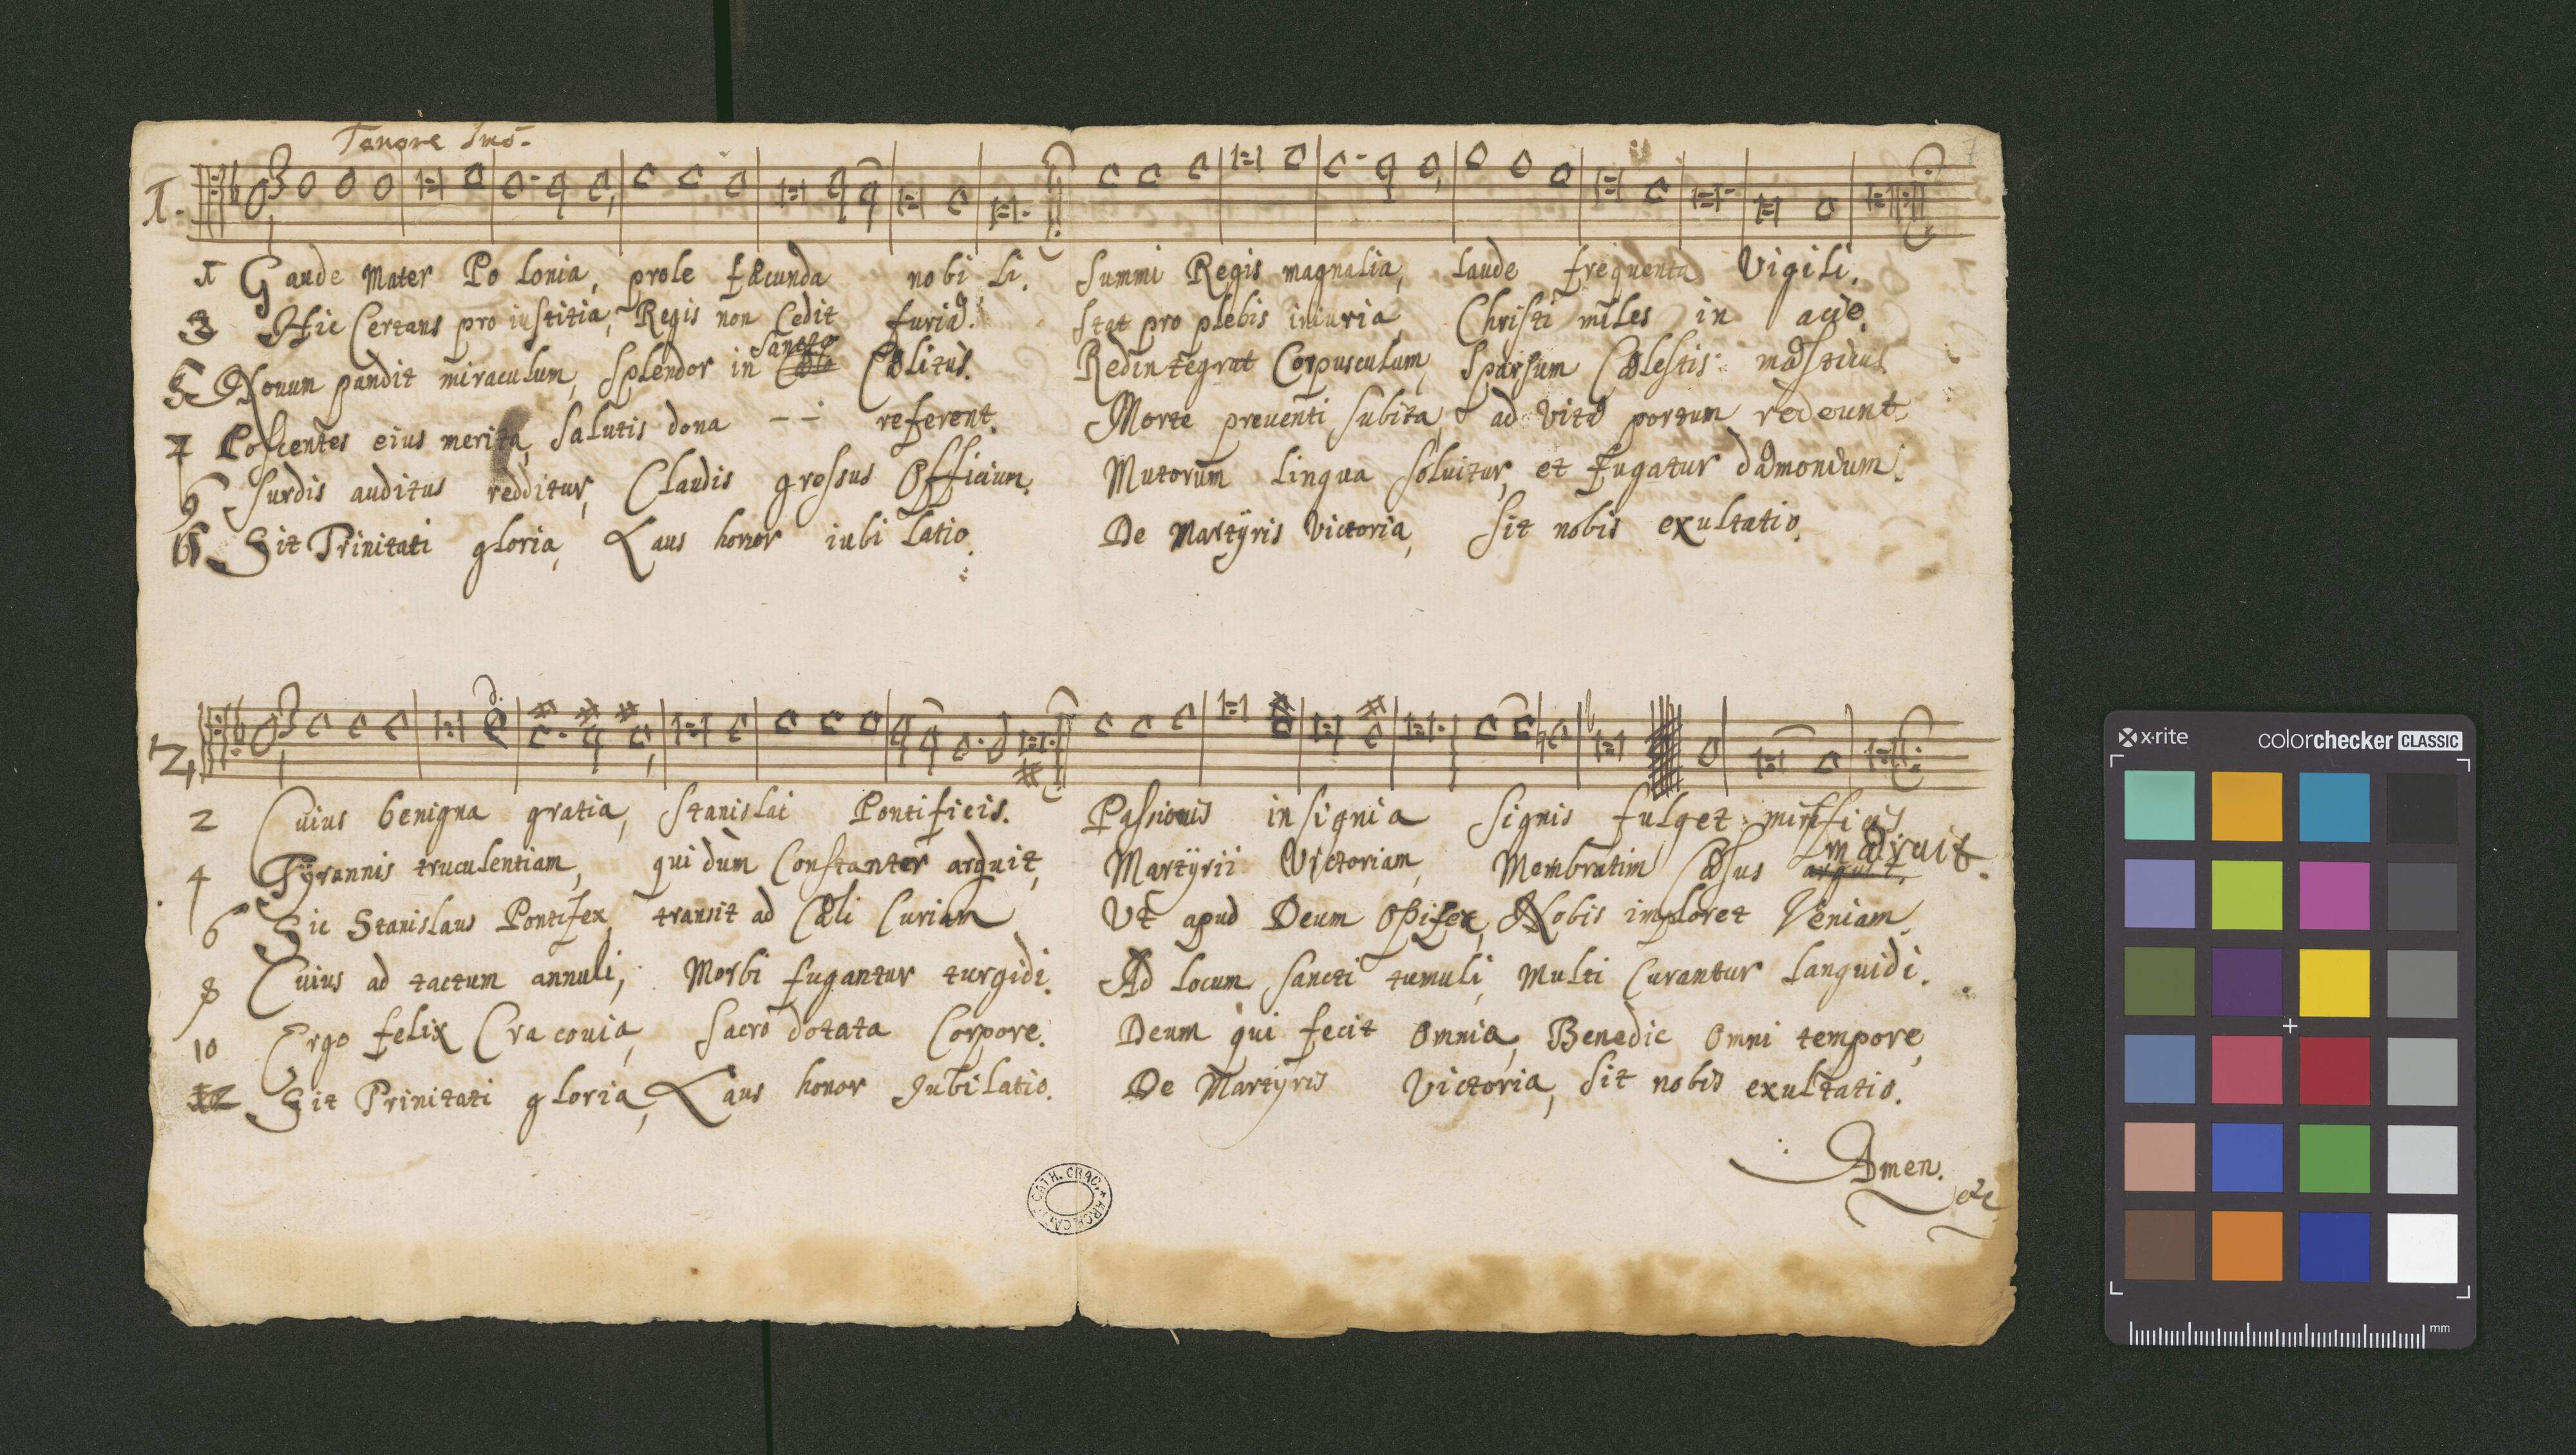 Tenore Imo.
1.
1 Gaude Mater Po lonia, prole fæcunda nobi li. Summi Regis magnalia, laude frequenta Vigili.
3 Hic Certans pro iustitia, Regis non Cedit furiæ. Stat pro plebis iniuria, Christi miles in acie.
Sancto
5 Nouum pandit miraculum, Splendor in Cælitus. Redintegrat Corpusculum, Sparsum Cælestis
7 Poscentes eius merita, Salutis dona -- referent. Morte preuenti Subita, ad Vitæ portum redeunt.
9 Surdis auditus redditur, Claudis gressus Officium. Mutorum lingua Soluitur, et fugatur dæmonium.
11 Sit Trinitati gloria, Laus honor iubi latio. De Martÿris Victoria, Sit nobis exultatio.
2
2 Cuius benigna gratia, Stanislai Pontificis. Passionis insignia Signis fulget mirificis
mæruit.
4 Tÿrannis truculentiam, qui dum Constanter arguit, Martÿrii Victoriam, Membratim Cæsus arguit.
6 Sic Stanislaus Pontifex, transit ad Cæli Curiam Vt apud Deum Opifex, Nobis imploret Veniam.
8 Cuius ad tactum annuli, Morbi fugantur turgidi. Ad locum Sancti tumuli, Multi Curantur Languidi.
10 Ergo felix Cra couia, Sacro dotata Corpore. Deum qui fecit Omnia, Benedic Omni tempore,
12 Sit Trinitati gloria, Laus honor Jubilatio. De Martÿris Victoria, Sit nobis exultatio.
Amen.
etc
CATH. CRAC. ARCH. CAP.
x-rite colorchecker CLASSIC
mm